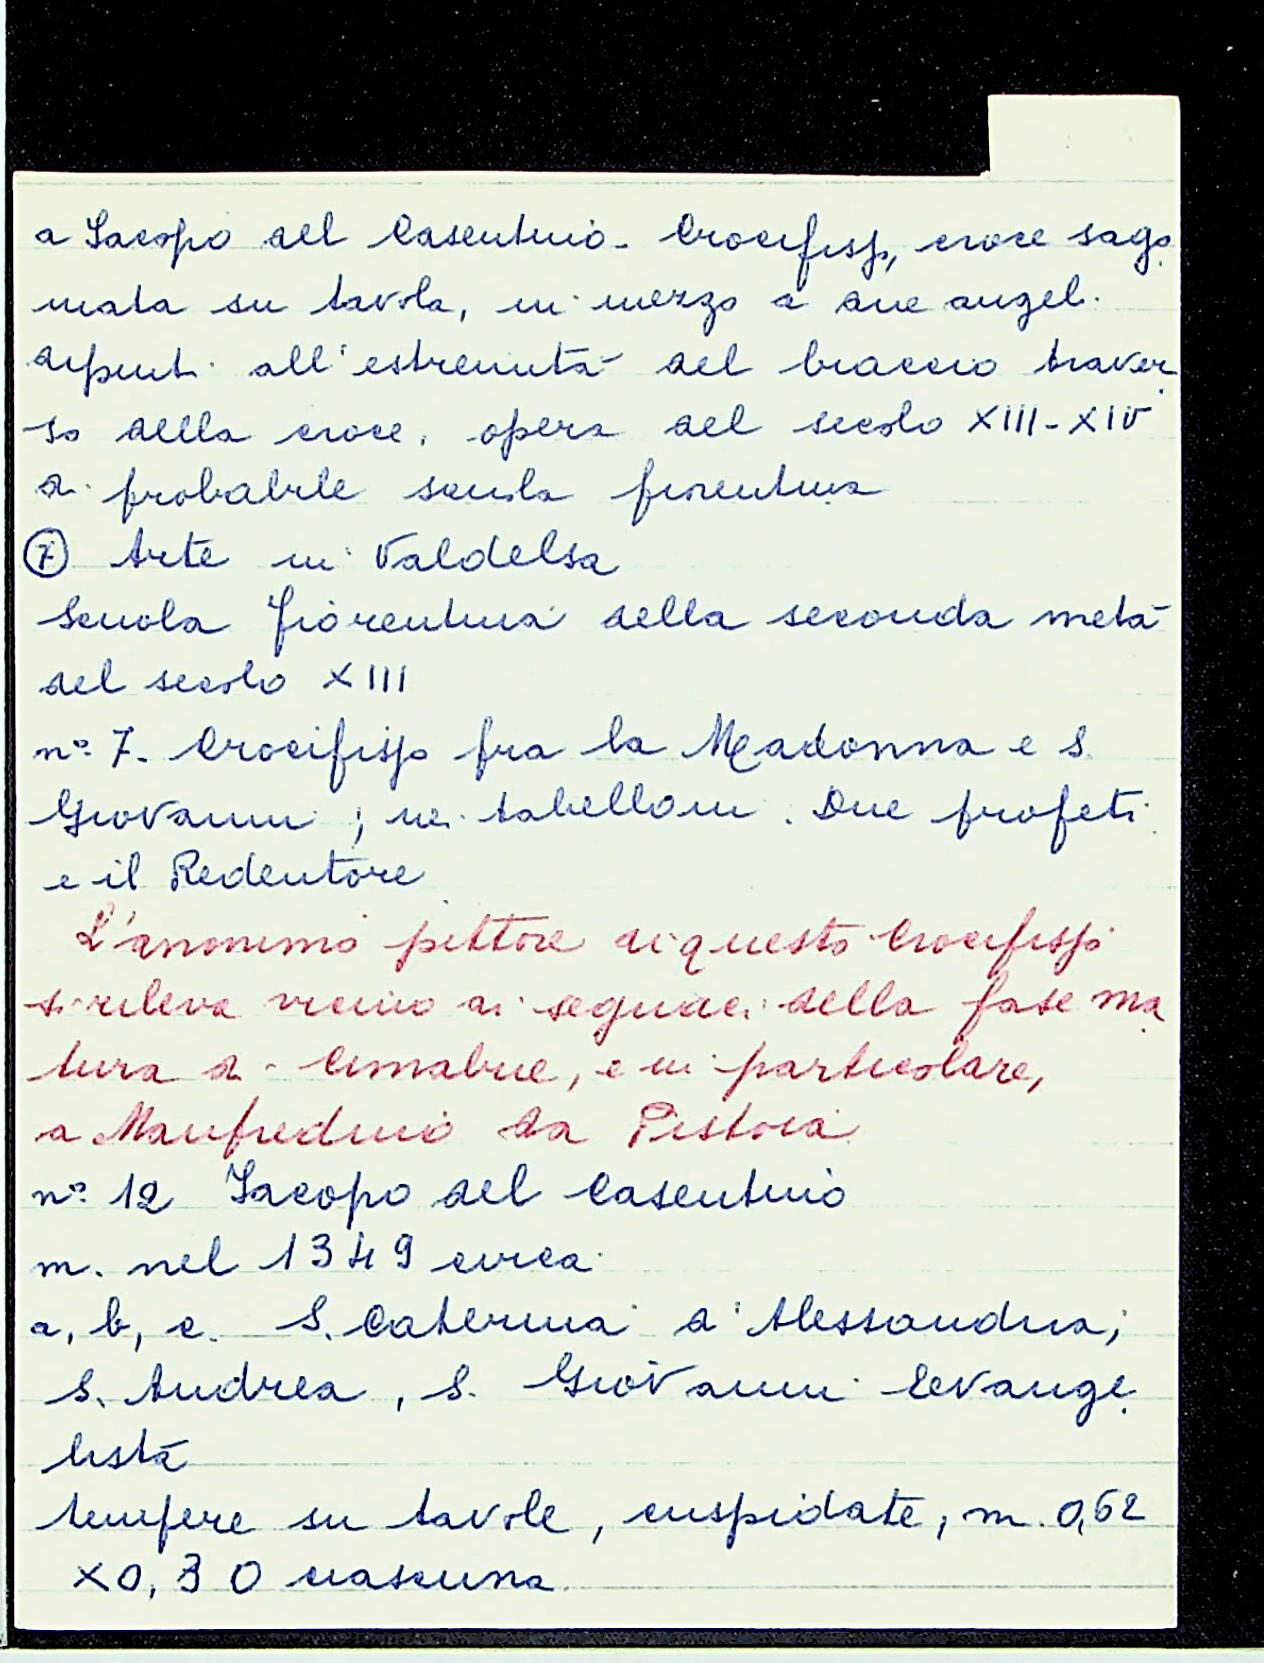 a Jacopo del Casentino - Crocifisso, croce sago
mata su tavola, in mezzo a due angeli
dipinti all'estremità del braccio traver
so della croce, opera del secolo XIII-XIV
di probabile scuola fiorentina
⑦ Arte in Valdelsa
Scuola fiorentina della seconda metà
del secolo XIII
n° 7. Crocifisso fra la Madonna e S.
Giovanni; nei tabelloni: Due profeti
e il Redentore
L'anonimo pittore di questo Crocifisso
si rileva vicino ai seguaci della fase ma
tura di Cimabue, e in particolare,
a Manfredino da Pistoia
n° 12 Jacopo del Casentino
m. nel 1349 circa
a, b, c. S. Caterina d'Alessandria;
S. Andrea, S. Giovanni Evange
lista
tempere su tavole, cuspidate; m. 0,62
x0,30 ciascuna